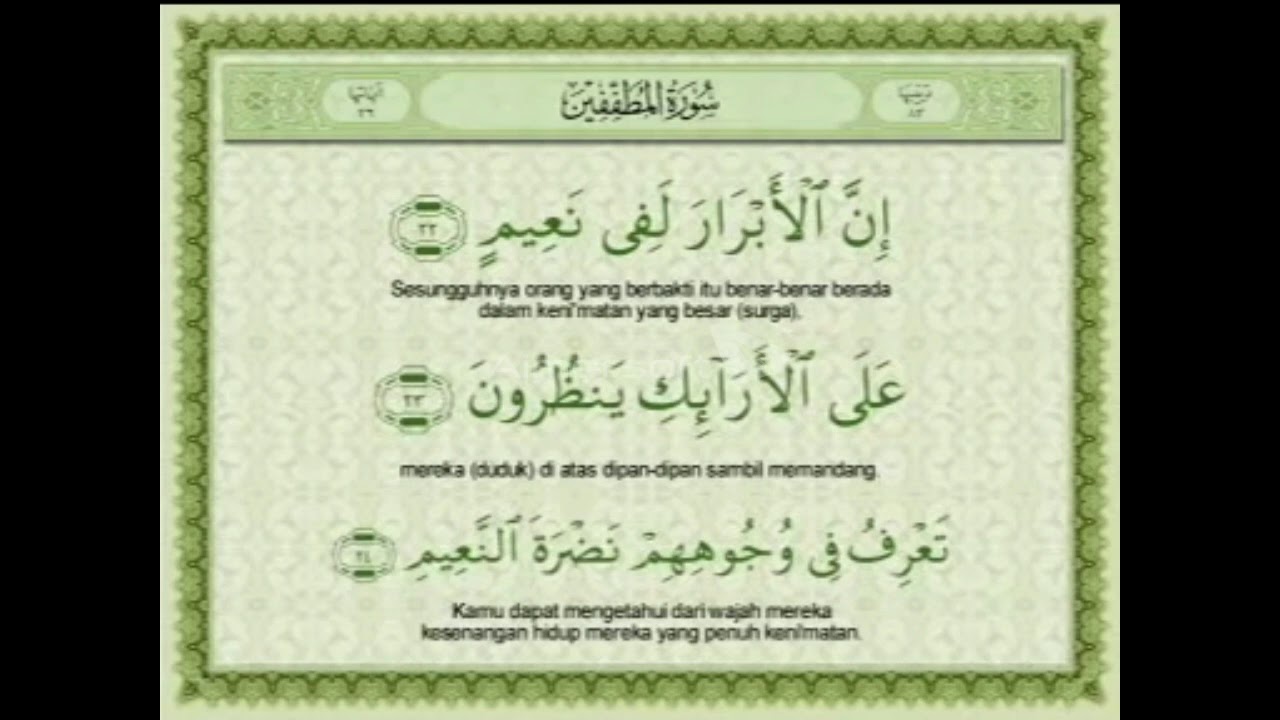 مرتبها ٨٣ سُورَةُ المُطَفِّفِينَ آياتها ٣٦
إِنَّ ٱلْأَبْرَارَ لَفِى نَعِيمٍ ٢٢
Sesungguhnya orang yang berbakti itu benar-benar berada
dalam keni'matan yang besar (surga),
عَلَى ٱلْأَرَآئِكِ يَنظُرُونَ ٢٣
mereka (duduk) di atas dipan-dipan sambil memandang.
تَعْرِفُ فِى وُجُوهِهِمْ نَضْرَةَ ٱلنَّعِيمِ ٢٤
Kamu dapat mengetahui dari wajah mereka
kesenangan hidup mereka yang penuh keni'matan.